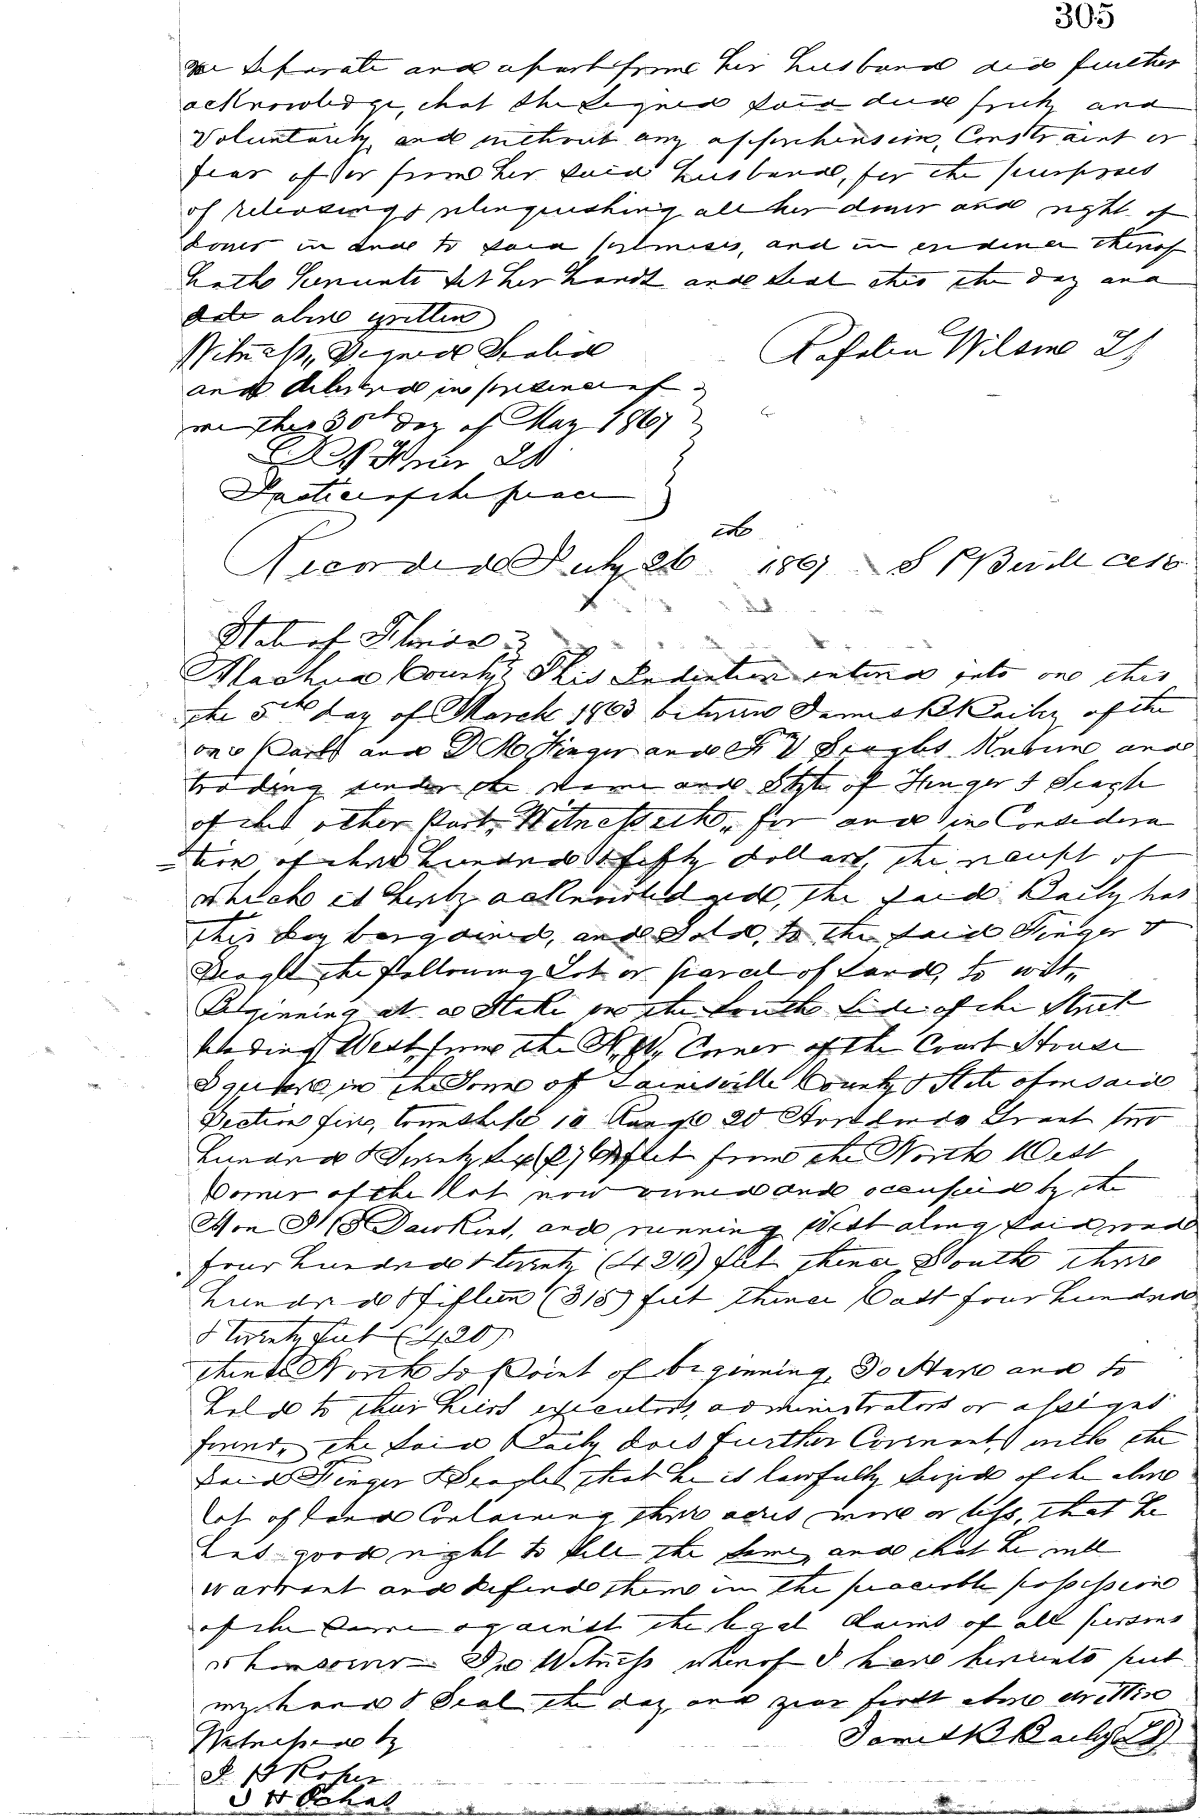 305
me separate and apart from her husband did further
acknowledge, that she signed said deed freely and
Voluntarily, and without any apprehension, Constraint or
fear of or from her said husband, for the purposes
of releasing & relinquishing all her dower and right of
dower in and to said premises, and in evidence thereof
hath hereunto set her hand and seal this the day and
date above written
Witness, Signed Sealed
Wilson LS
and delivered in presence of
me this 30th day of May 1867
LS
Justice of the peace
Recorded July 26th 1867
State of Florida
Alachua County This Indenture entered into on this
the 5th day of March 1863 between James B Baily of the
one Part and D M Finger and F V Seagle Known and
trading under the name and Style of Finger & Seagle
of the other Part, Witnesseth, for and in Considera
tion of three hundred & fifty dollars, the receipt of
which is hereby acknowledged, the said Baily has
this day bargained, and Sold, to the said Finger &
Seagle the following Lot or parcel of Land, to wit,
Beginning at a Stake on the South Side of the Street
leading West from the N.W. Corner of the Court House
Square in the Town of Gainesville County & State aforesaid
Section five, township 10 Range 20 Arredondo Grant two
hundred & Seventy Six (276) feet from the North West
Corner of the lot now owned and occupied by the
Hon J B Dawkins, and running West along said road
four hundred & twenty (420) feet thence South three
hundred & fifteen (315) feet thence East four hundred
& twenty feet (420)
thence North to Point of beginning, To Have and to
hold to their heirs executors, administrators or assigns
forever, the said Baily does further Covenant with the
said Finger & Seagle that he is lawfully seized of the above
lot of land Containing three acres more or less, that he
has good right to sell the same, and that he will
warrant and defend them in the peaceable possession
of the same against the legal claims of all persons
whomsoever In Witness whereof I have hereunto put
my hand & Seal the day and year first above written
Witnessed by
James B Baily LS
Roper